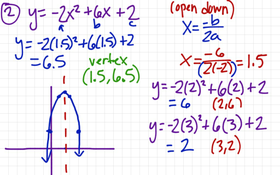 ② y = -2x² + 6x + 2
a b c
(open down)
x = -b/2a
y = -2(1.5)² + 6(1.5) + 2
= 6.5
vertex
(1.5, 6.5)
x = -6/2(-2) = 1.5
y = -2(2)² + 6(2) + 2
= 6 (2,6)
y = -2(3)² + 6(3) + 2
= 2 (3,2)